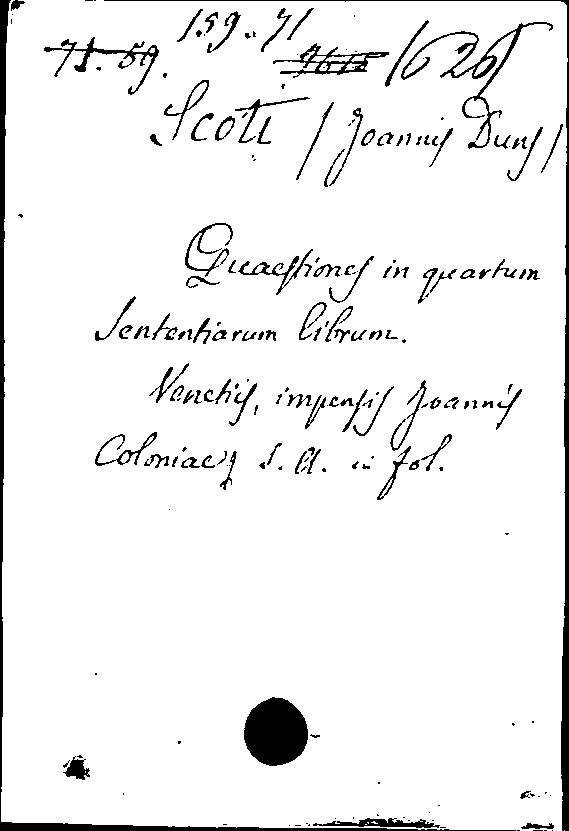 159.71
71.59.
1626
Scoti / Joannis Duns /
Quaestiones in quartum
Sententiarum librum.
Venetiis, impensis Joannis
Coloniae, S. A. in fol.